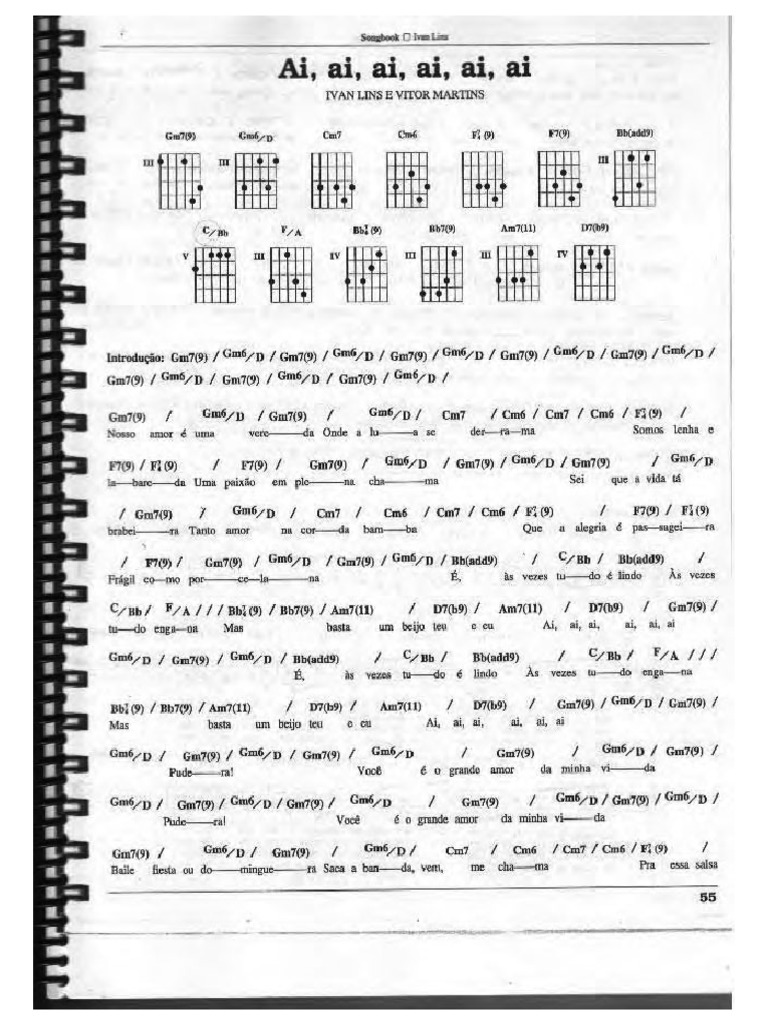 Songbook □ Ivan Lins
Ai, ai, ai, ai, ai, ai
IVAN LINS E VITOR MARTINS
Gm7(9) Gm6/D Cm7 Cm6 F7/4 (9) F7(9) Bb(add9)
III III III
C/Bb F/A Bb7/4 (9) Bb7(9) Am7(11) D7(b9)
V III IV III III IV
Introdução: Gm7(9) / Gm6/D / Gm7(9) / Gm6/D / Gm7(9) / Gm6/D / Gm7(9) / Gm6/D / Gm7(9) / Gm6/D /
Gm7(9) / Gm6/D / Gm7(9) / Gm6/D / Gm7(9) / Gm6/D /
Gm7(9) / Gm6/D / Gm7(9) / Gm6/D / Cm7 / Cm6 / Cm7 / Cm6 / F7/4 (9) /
Nosso amor é uma vere——da Onde a lu——a se der—ra—ma Somos lenha e
F7(9) / F7/4 (9) / F7(9) / Gm7(9) / Gm6/D / Gm7(9) / Gm6/D / Gm7(9) / Gm6/D
la—bare—da Uma paixão em ple——na cha——ma Sei que a vida tá
/ Gm7(9) / Gm6/D / Cm7 / Cm6 / Cm7 / Cm6 / F7/4 (9) / F7(9) / F7/4 (9)
brabei——ra Tanto amor na cor——da bam—ba Que a alegria é pas—sugei—ra
/ F7(9) / Gm7(9) / Gm6/D / Gm7(9) / Gm6/D / Bb(add9) / C/Bb / Bb(add9) /
Frágil co—mo por——ce—la——na É, às vezes tu——do é lindo Às vezes
C/Bb / F/A / / / Bb7/4 (9) / Bb7(9) / Am7(11) / D7(b9) / Am7(11) / D7(b9) / Gm7(9) /
tu——do enga—na Mas basta um beijo teu e eu Ai, ai, ai, ai, ai, ai
Gm6/D / Gm7(9) / Gm6/D / Bb(add9) / C/Bb / Bb(add9) / C/Bb / F/A / / /
É, às vezes tu——do é lindo Às vezes tu——do enga—na
Bb7/4 (9) / Bb7(9) / Am7(11) / D7(b9) / Am7(11) / D7(b9) / Gm7(9) / Gm6/D / Gm7(9) /
Mas basta um beijo teu e eu Ai, ai, ai, ai, ai, ai
Gm6/D / Gm7(9) / Gm6/D / Gm7(9) / Gm6/D / Gm7(9) / Gm6/D / Gm7(9) /
Pude——ra! Você é o grande amor da minha vi——da
Gm6/D / Gm7(9) / Gm6/D / Gm7(9) / Gm6/D / Gm7(9) / Gm6/D / Gm7(9) / Gm6/D /
Pude——ra! Você é o grande amor da minha vi——da
Gm7(9) / Gm6/D / Gm7(9) / Gm6/D / Cm7 / Cm6 / Cm7 / Cm6 / F7/4 (9) /
Baile fiesta ou do——mingue——ra Saca a ban——da, vem, me cha—ma Pra essa salsa
55